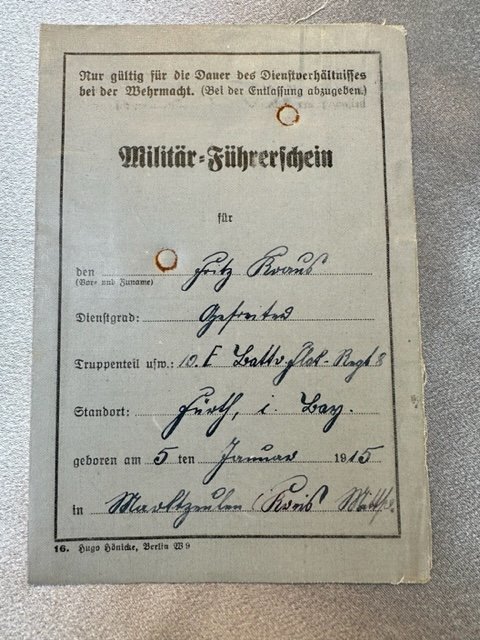 Nur gültig für die Dauer des Dienstverhältnisses
bei der Wehrmacht. (Bei der Entlassung abzugeben.)
Militär-Führerschein
für
den Fritz Kraus
(Vor- und Zuname)
Dienstgrad: Gefreiter
Truppenteil usw.: 10. Battr. Regt 8
Standort: Fürth, i. Bay.
geboren am 5 ten Januar 1915
in Marktzeuln (Kreis
16. Hugo Hönicke, Berlin W 9